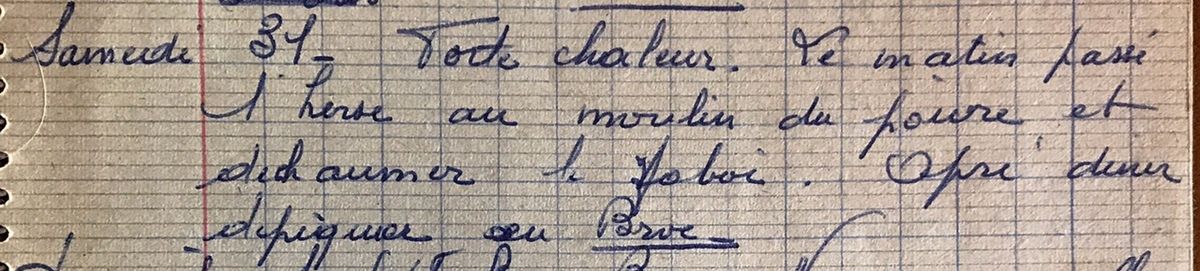 Samedi 31- Forte chaleur. Le matin passé
l'herse au moulin du poivre et
dechaumer le
. Apré diner
depiquer au Broc